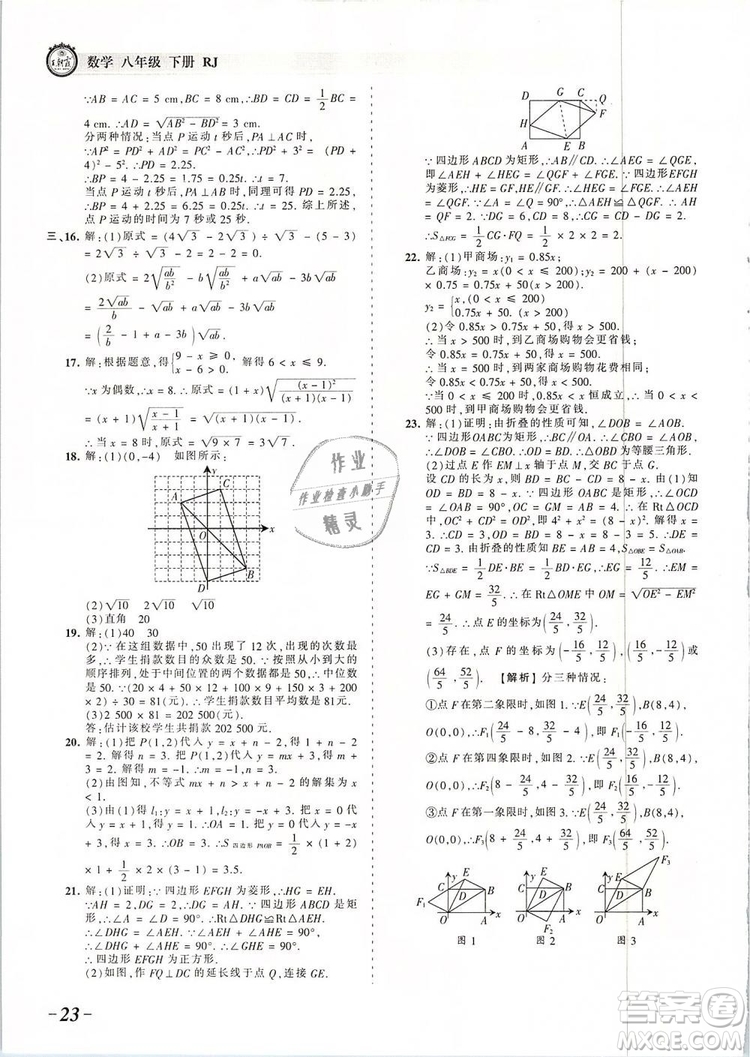 王朝霞 数学 八年级 下册 RJ
∵AB = AC = 5 cm,BC = 8 cm,∴BD = CD = 1/2 BC =
4 cm. ∴AD = √(AB² − BD²) = 3 cm.
分两种情况:当点 P 运动 t 秒后,PA⊥AC 时,
∵AP² = PD² + AD² = PC² − AC²,∴PD² + 3² = (PD +
4)² − 5². ∴PD = 2.25.
∴BP = 4 − 2.25 = 1.75 = 0.25t. ∴t = 7.
当点 P 运动 t 秒后,PA⊥AB 时,同理可得 PD = 2.25,
∴BP = 4 + 2.25 = 6.25 = 0.25t. ∴t = 25. 综上所述,
点 P 运动的时间为 7 秒或 25 秒.
三、16. 解:(1)原式 = (4√3 − 2√3) ÷ √3 − (5 − 3)
= 2√3 ÷ √3 − 2 = 2 − 2 = 0.
(2)原式 = 2√(ab/b²) − b√(ab)/b + a√(ab) − 3b√(ab)
= 2√(ab)/b − √(ab) + a√(ab) − 3b√(ab)
= (2/b − 1 + a − 3b)√(ab).
17. 解:根据题意,得{9 − x ≥ 0, x − 6 > 0. 解得 6 < x ≤ 9.
∵x 为偶数,∴x = 8. ∴原式 = (1 + x)√((x − 1)²/((x + 1)(x − 1)))
= (x + 1)√((x − 1)/(x + 1)) = √((x + 1)(x − 1)).
∴当 x = 8 时,原式 = √(9 × 7) = 3√7.
18. 解:(1)(0, −4) 如图所示:
y
C
A
O
x
B
D
(2)√10 √10 2√10
(3)直角 20
19. 解:(1)40 30
(2)∵在这组数据中,50 出现了 12 次,出现的次数最
多,∴学生捐款数目的众数是 50 元. ∵按从小到大的
顺序排列,处于中间位置的两个数据都是 50,∴中位数
为 50 元. ∵(20 × 4 + 50 × 12 + 100 × 10 + 150 × 8 +
200 × 6) ÷ 40 = 81(元),∴学生捐款数目平均数是 81元.
(3)2 500 × 81 = 202 500(元).
答:估计该校学生共捐款 202 500 元.
20. 解:(1)把 P(1,2)代入 y = x + n − 2,得 1 + n − 2 =
2. 解得 n = 3. 把 P(1,2)代入 y = mx + n,得 m + 3 =
2. 解得 m = −1. ∴m = −1,n = 3.
(2)由图知,不等式 mx + n > x + n − 2 的解集为 x
< 1.
(3)由(1)得 l₁:y = x + 1,l₂:y = −x + 3. 把 x = 0 代入
y = x + 1,得 y = 1. ∴OA = 1. 把 y = 0 代入 y = −x + 3,
得 x = 3. ∴OB = 3. ∴S四边形PAOB = 1/2 × (1 + 2)
× 1 + 1/2 × (3 − 1) × 2 = 3.5.
21. 解:(1)证明:∵四边形 EFGH 为菱形,∴HG = EH.
∵AH = 2,DG = 2,∴DG = AH. ∵四边形 ABCD 是矩形,
∴∠A = ∠D = 90°. ∴Rt△DHG≌Rt△AEH.
∴∠DHG = ∠AEH. ∴∠DHG + ∠AHE = 90°.
∴∠GHE = 90°. ∴四边形 EFGH 为正方形.
(2)如图,作 FQ⊥DC 的延长线于点 Q,连接 GE.
-23-
D
G
C
Q
F
H
A
E
B
∵四边形 ABCD 为矩形,∴AB∥CD. ∴∠AEG = ∠QGE,
即∠AEH + ∠HEG = ∠QGF + ∠FGE. ∵四边形 EFGH
为菱形,∴HE = GF,HE∥GF. ∴∠HEG = ∠FGE. ∴∠AEH
= ∠QGF. ∵∠A = ∠Q = 90°,∴△AEH≌△QGF. ∴AH =
QF = 2. ∵DG = 6,CD = 8,∴CG = 2.
∴S△FCG = 1/2 CG·FQ = 1/2 × 2 × 2 = 2.
22. 解:(1)甲商场:y₁ = 0.85x;
乙商场:y₂ = x(0 < x ≤ 200);y₂ = 200 + (x − 200)
× 0.75 = 0.75x + 50(x > 200),即
y₂ = {x,(0 < x ≤ 200) 0.75x + 50. (x > 200)
(2)令 0.85x > 0.75x + 50,得 x > 500,
∴当 x > 500 时,到乙商场购物会更省钱;
令 0.85x = 0.75x + 50,得 x = 500,
∴当 x = 500 时,到两家商场购物花费相同;
令 0.85x < 0.75x + 50,得 x < 500,
∵当 0 < x ≤ 200 时,0.85x < x 恒成立,∴当 0 < x <
500 时,到甲商场购物会更省钱.
23. 解:(1)证明:由折叠的性质知,∠DOB = ∠AOB.
∵四边形 OABC 为矩形,∴BC∥OA. ∴∠OBC = ∠AOB.
∴∠DOB = ∠OBC. ∴DO = DB. ∴△OBD 为等腰三角形.
(2)过点 E 作 EM⊥x 轴于点 M,交 BC 于点 G.
设 CD 的长为 x,则 BD = OD = 8 − x. ∵四边形 OABC 是矩形,∴∠OCD
= 90°,OC = GM = AB = 4. ∴在 Rt△OCD 中,
OC² + CD² = OD²,即 4² + x² = (8 − x)². ∴x = 3. ∴CD = 3.
∴OD = BD = 5. ∴DE = 8 − 5 = 3. 由折叠的性质知 BE = AB = 4,S△OBE = S△OAB.
∴S△BDE = 1/2 DE·BE = 1/2 BD·EG. ∴EG = 12/5. ∴EM =
EG + GM = 32/5. ∴在 Rt△OME 中 OM = √(OE² − EM²)
= 24/5. ∴点 E 的坐标为(24/5, 32/5).
(3)存在,点 F 的坐标为(−16/5, 12/5)或(16/5, −12/5)或
(64/5, 52/5). 【解析】分三种情况:
①点 F 在第二象限时,如图1. ∵E(24/5, 32/5),B(8,4),
O(0,0),∴F₁(24/5 − 8, 32/5 − 4),即 F₁(−16/5, 12/5);
②点 F 在第四象限时,如图 2. ∵E(24/5, 32/5),B(8,4),
O(0,0),∴F₂(8 − 24/5, 4 − 32/5),即 F₂(16/5, −12/5);
③点 F 在第一象限时,如图 3. ∵E(24/5, 32/5),B(8,4),
O(0,0),∴F₃(8 + 24/5, 4 + 32/5),即 F₃(64/5, 52/5).
图 1
图 2
图 3
作业
作业检查小助手
精灵
答案圈
MXQE.COM